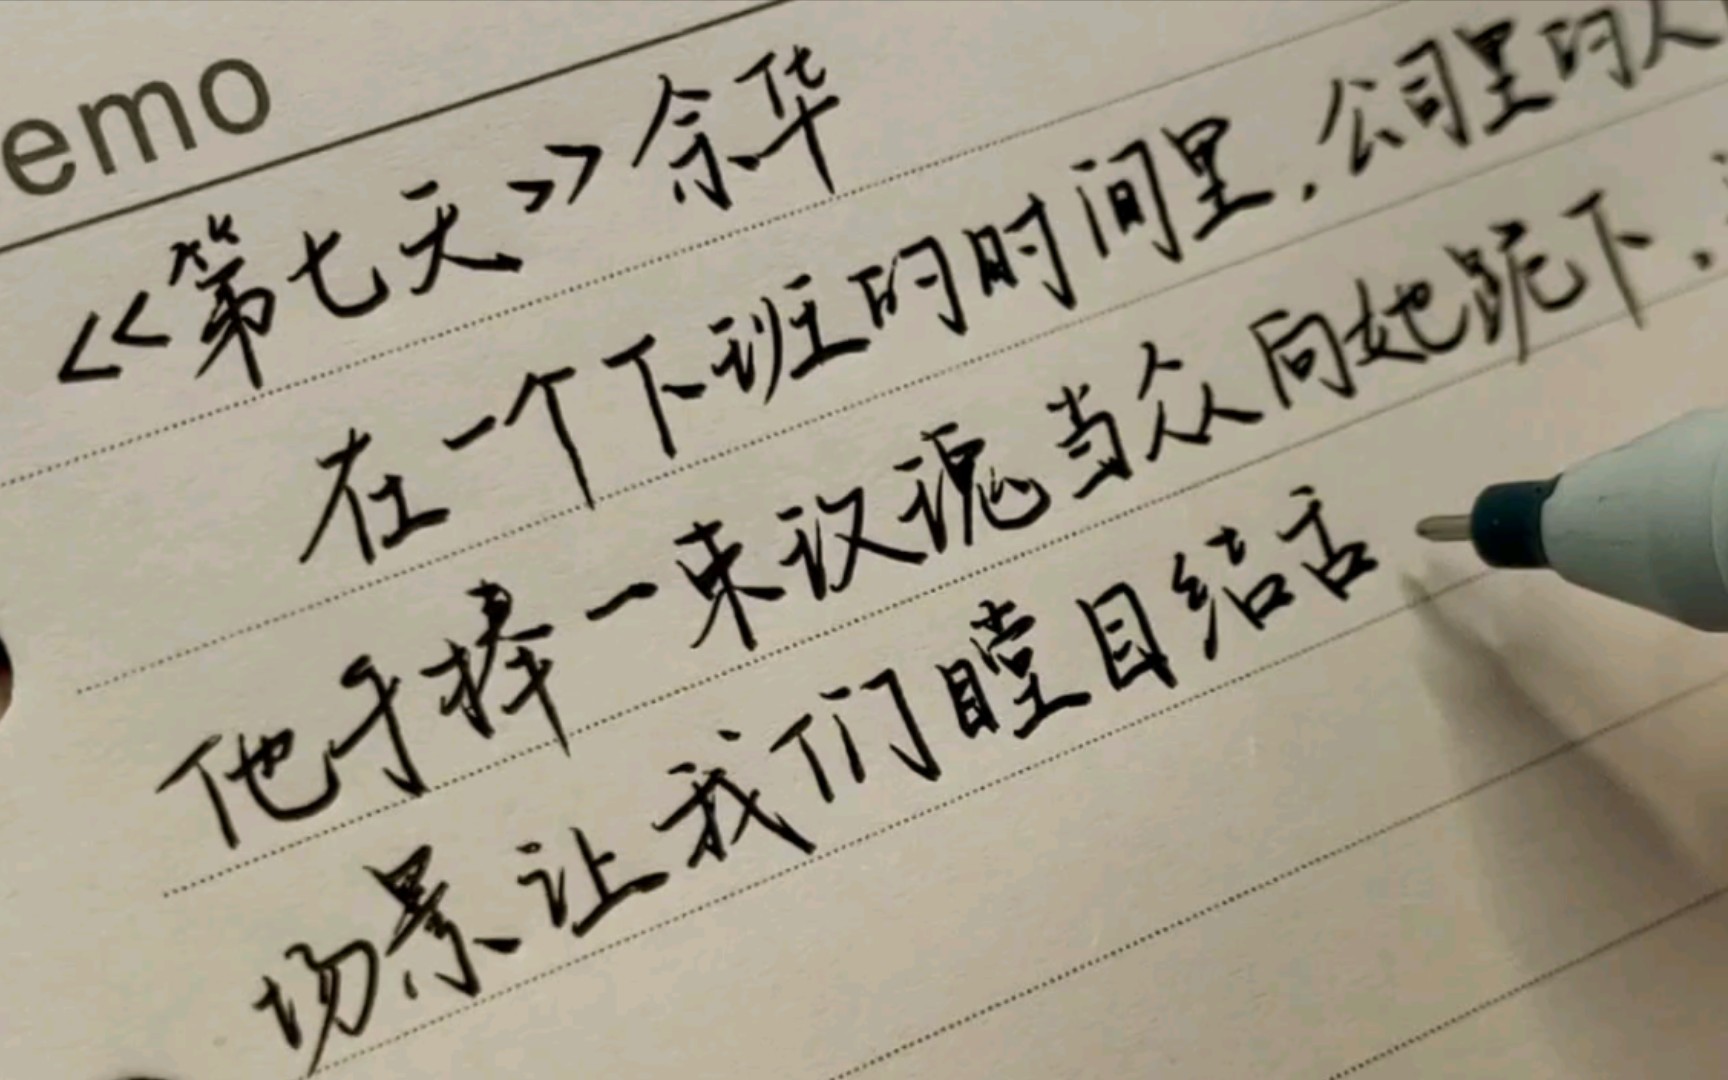 emo
《第七天》余华
在一个下班的时间里，公司里的人
他手捧一束玫瑰当众向她跪下，
场景让我们瞠目结舌